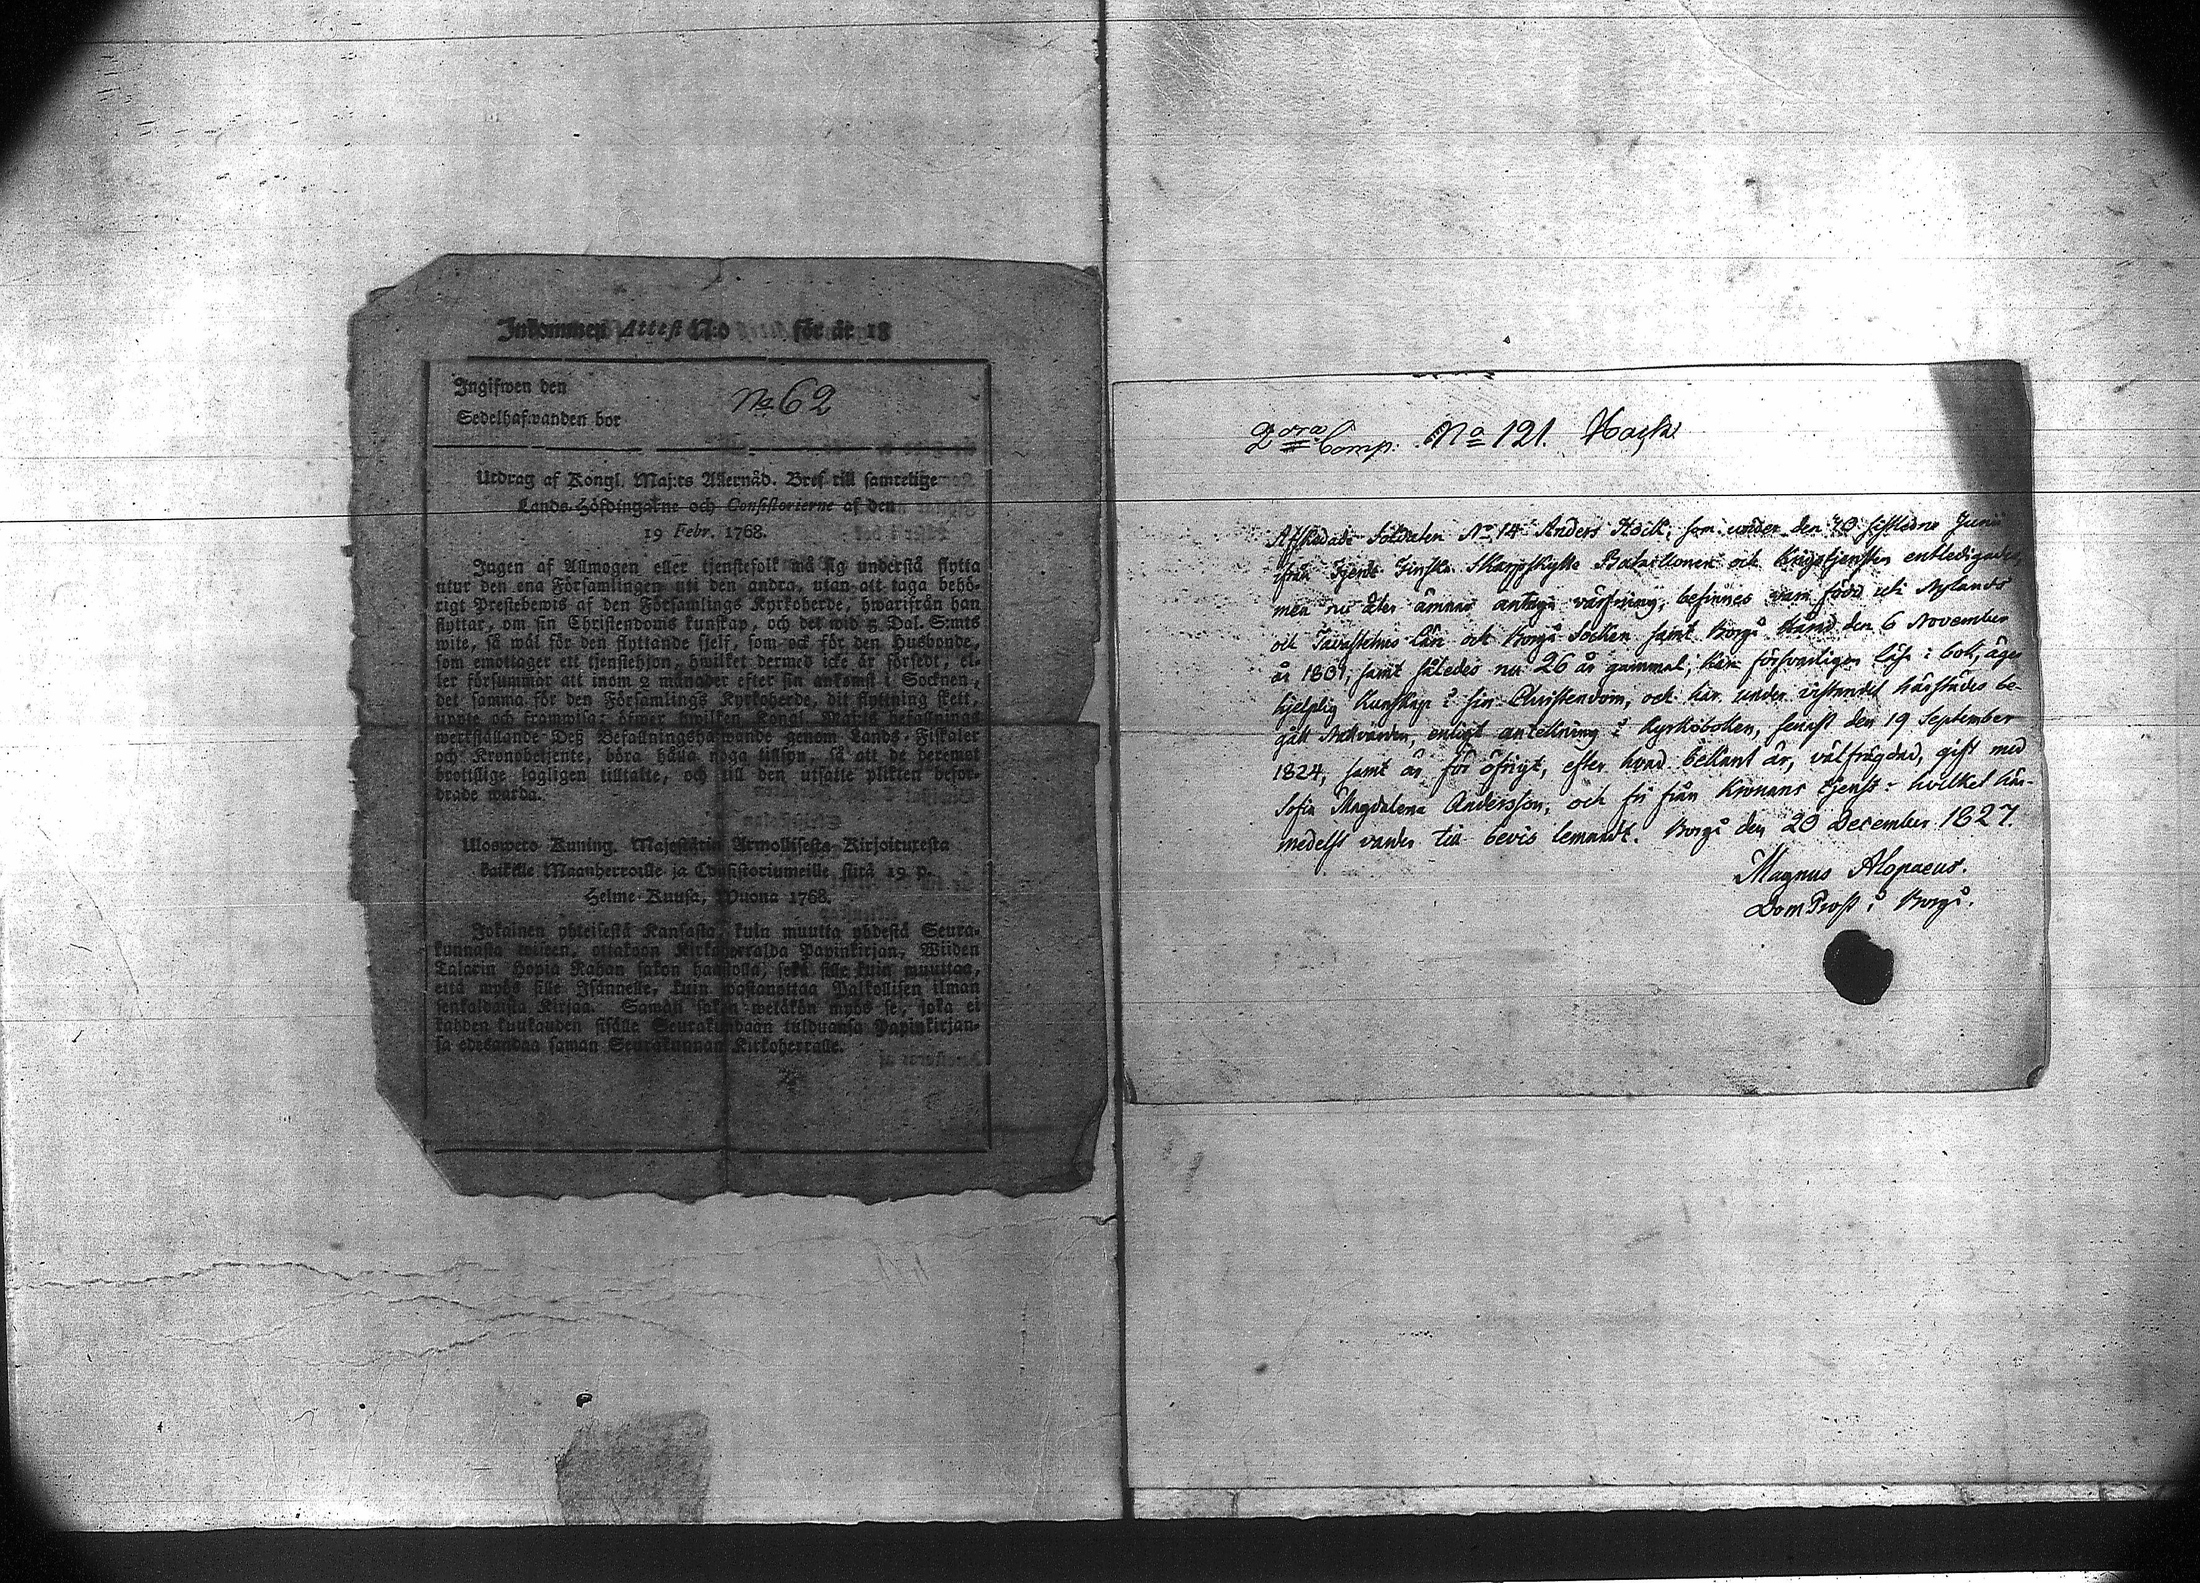 Inkommen Attest N:o för år 18
Ingifwen den
No 62
Sedelhafwanden bor
Utdrag af Kongl. Maj:ts Allernåd. Bref till samtelige
Lands-Höfdingarne och Consistorierne af den
19 Febr. 1768.
Ingen af Allmogen eller tjenstefolk må sig understå flytta
utur den ena Församlingen uti den andra, utan att taga behö-
rigt Prestebewis af den Församlings Kyrkoherde, hwarifrån han
flyttar, om sin Christendoms kunskap, och det wid 5 Dal. S:mts
wite, så wäl för den flyttande sjelf, som ock för den Husbonde,
som emottager ett tjenstehjon, hwilket dermed icke är försedt, el-
ler försummar att inom 2 månader efter sin ankomst i Socknen,
det samma för den Församlings Kyrkoherde, dit flyttning skett,
uppte och framwisa; öfwer hwilken Kongl. Maj:ts befallnings
werkställande Deß Befallningshafwande genom Lands-Fiskaler
och Kronobetjente, böra hålla noga tillsyn, så att de deremot
brottslige lagligen tilltalte, och till den utsatte plikten befor-
drade warda.
Ulosweto Kuning. Majestätin Armollisesta Kirjoituxesta
kaikille Maanherroille ja Consistoriumeille siitä 19 p.
Helme-Kuusa, Wuona 1768.
Jokainen yhteisestä Kansasta, kuin muutta yhdestä Seura-
kunnasta toiseen, ottakoon Kirkoherralda Papinkirjan, Wiiden
Talarin Hopia Rahan sakon haastolla, sekä sille kuin muuttaa,
että myös sille Isännelle, kuin wastanottaa Palkollisen ilman
senkaldaista Kirjaa. Saman sakon wetäkön myös se, joka ei
kahden kuukauden sisälle Seurakundaan tulduansa Papinkirjan-
sa edesandaa saman Seurakunnan Kirkoherralle.
2dra Comp. No 121. Hack
Afskedade Soldaten No 14 Anders Höck, som under den 10 sistledne Junii
ifrån Tjerde Finska Skarpskytte Bataillonen och krigstjensten entledigades,
men nu åter ämnar antaga värfning, befinnes vara född uti Nylands
och Tavastehus Län och Borgå Socken samt Borgå den 6 November
år 1801, samt således nu 26 år gammal; kan försvarligen läsa i bok, äger
hjelplig kunskap i sin Christendom, och har under vistandet härstädes be-
gått Nattvarden, enligt anteckning i Kyrkoboken, senast den 19 September
1824, samt är för öfrigt, efter hvad bekant är, välfrägdad, gift med
Sofia Magdalena Andersson, och fri från Kronans tjenst: hvilket här-
medelst varder till bevis lemnadt. Borgå den 20 December 1827.
Magnus Alopaeus.
DomProst i Borgå.